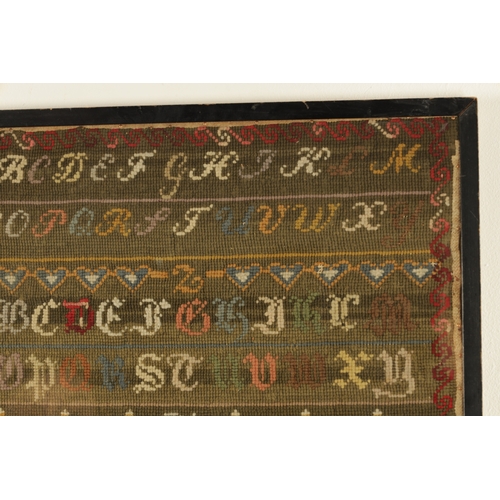 B C D E F G H I K L M
O P Q R S T U V W X Y
Z
B C D E F G H I K L M
O P Q R S T U V W X Y